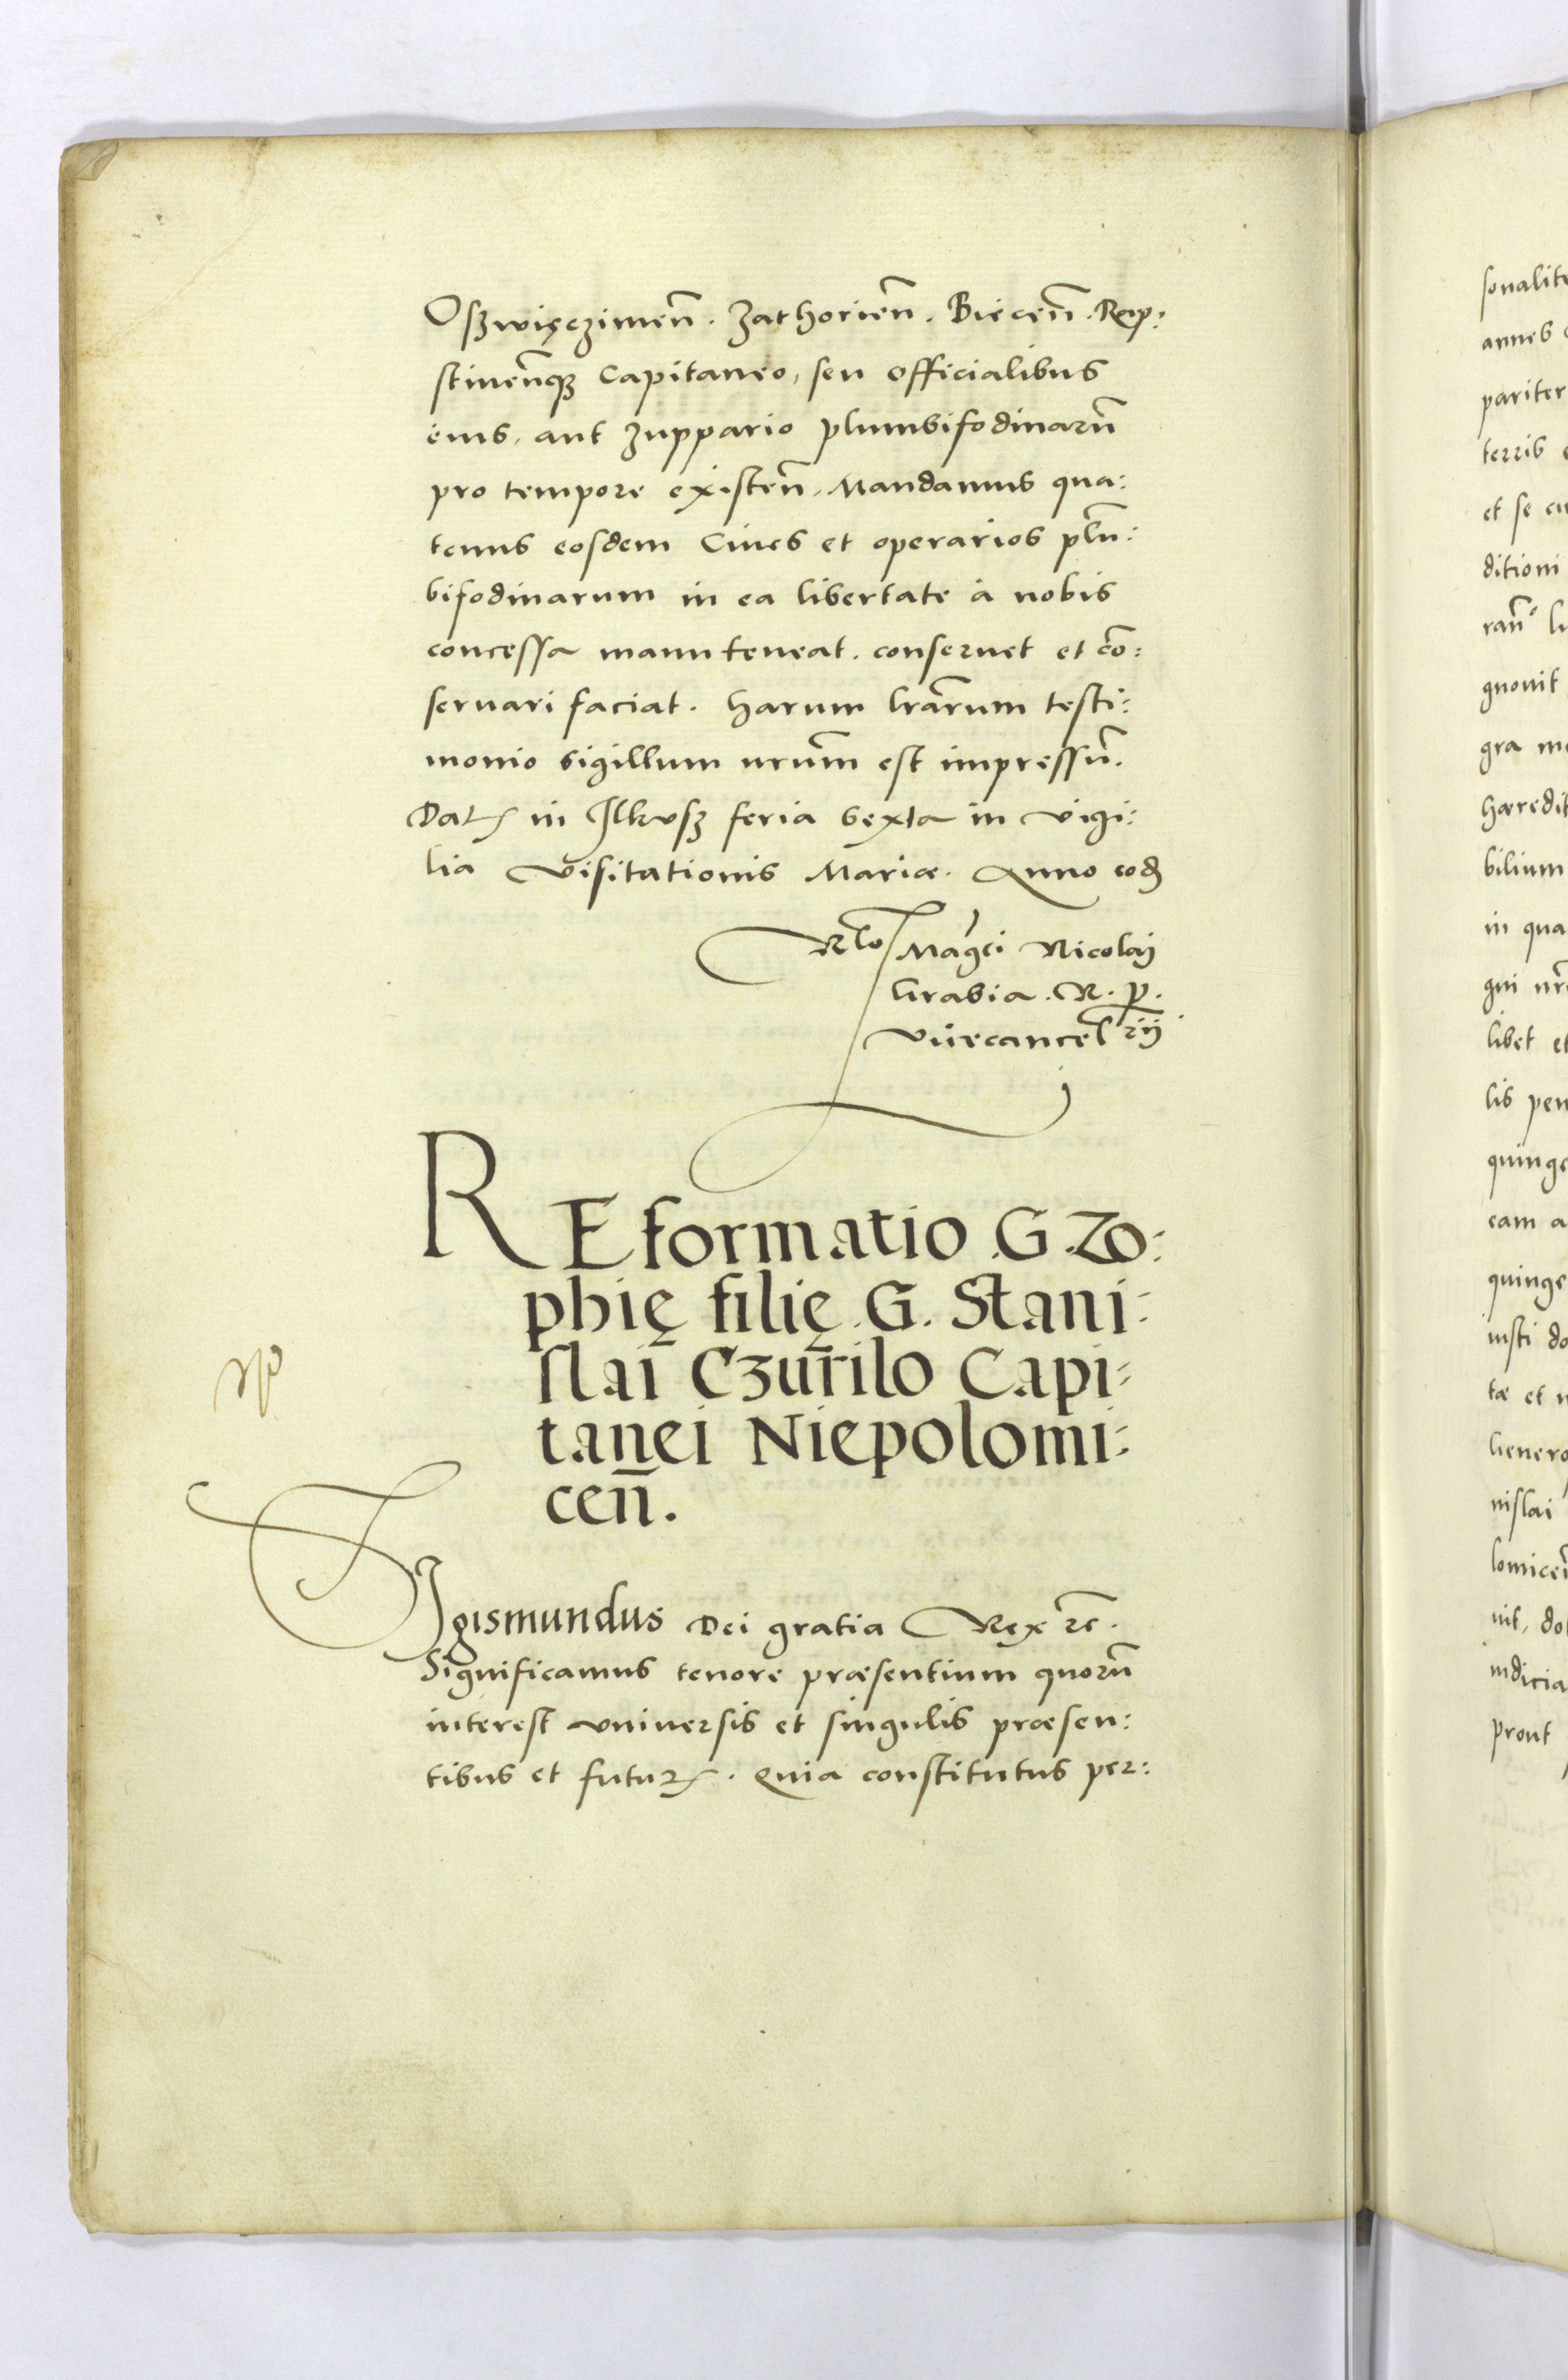 Oszwięczimen̄. Zathorien̄. Biecen̄. Rap:
stinen̄q3 Capitaneo, seu officialibus
eius, aut Zuppario plumbifodinarū
pro tempore existen̄, Mandamus qua:
tenus eosdem Ciues et operarios plū:
bifodinarum in ea libertate à nobis
concessa manuteneat. conseruet et cō:
seruari faciat. Harum lrārum testi:
monio sigillum nrūm est impressū.
Dat. in Ilkusz feria sexta in vigi:
lia Visitationis Mariæ. Anno eod
Rlo Magci Nicolaij
Grabia. R. P.
Vicecancellrij
REformatio .G. Zo:
phię filię .G. Stani:
slai Czurilo Capi:
tanei Niepolomi:
cen̄.
SIgismundus Dei gratia Rex rc̄.
Significamus tenore præsentium quorū
interest vniuersis et singulis præsen:
tibus et futur. Quia constitutus per:
sonalite
annes
pariter
terris
et se cu
ditioni
ran̄
gnouit
gra
hæredit
bilium
in qua
qui nr̄
libet et
lis pen
quinge
eam a
quinge
iusti do
tæ et
Genero
nislai
lomicen̄
uit, do
iudicia
prout